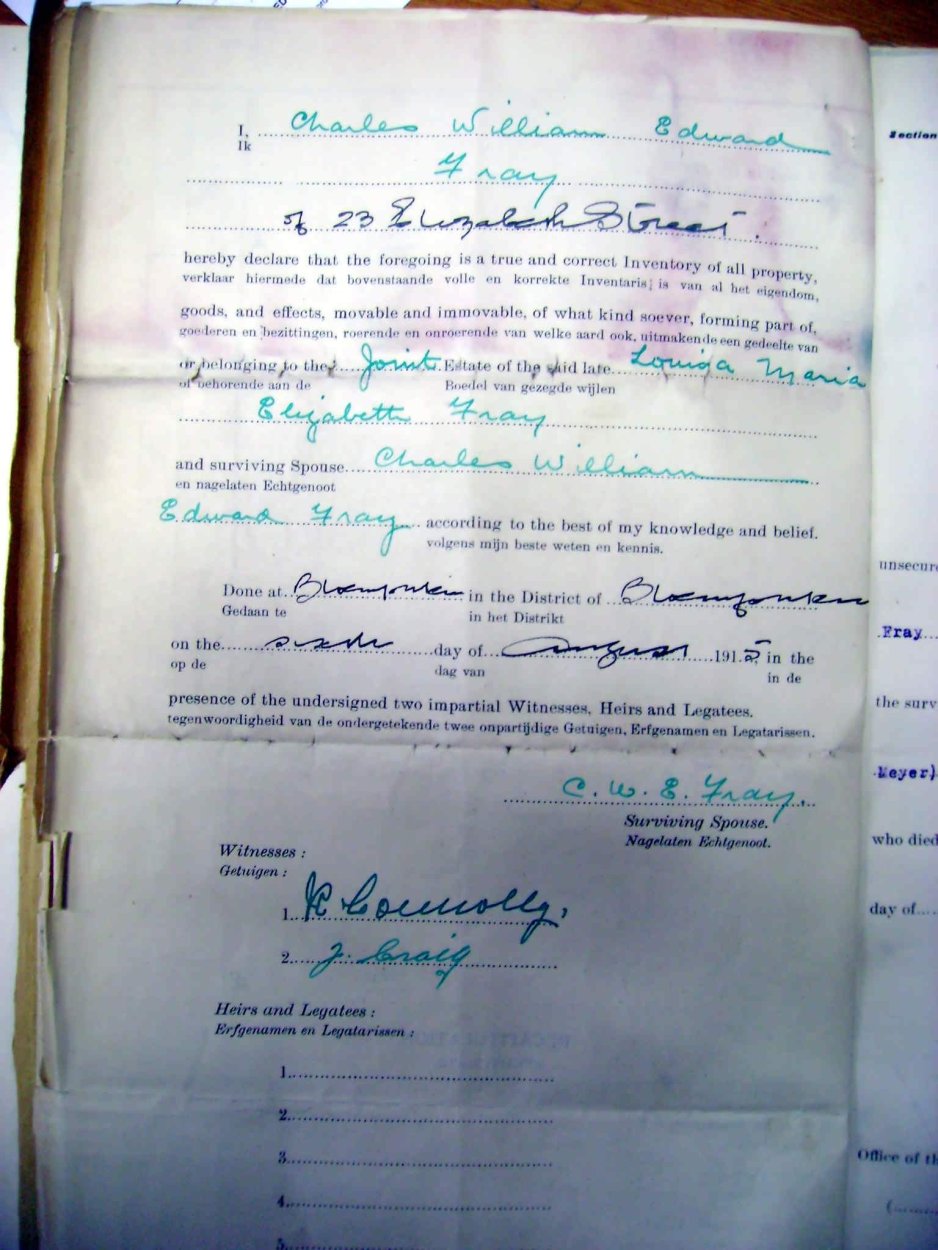 I, Charles William Edward
Ik
Fray
of 23 Elizabeth Street.
hereby declare that the foregoing is a true and correct Inventory of all property,
verklaar hiermede dat bovenstaande volle en korrekte Inventaris, is van al het eigendom,
goods, and effects, movable and immovable, of what kind soever, forming part of,
goederen en bezittingen, roerende en onroerende van welke aard ook, uitmakende een gedeelte van
or belonging to the Joint Estate of the said late Louisa Maria
of behorende aan de Boedel van gezegde wijlen
Elizabeth Fray
and surviving Spouse Charles William
en nagelaten Echtgenoot
Edward Fray according to the best of my knowledge and belief.
volgens mijn beste weten en kennis.
Done at Bloemfontein in the District of Bloemfontein
Gedaan te in het Distrikt
on the sixth day of August 1915 in the
op de dag van in de
presence of the undersigned two impartial Witnesses, Heirs and Legatees.
tegenwoordigheid van de ondergetekende twee onpartijdige Getuigen, Erfgenamen en Legatarissen.
C. W. E. Fray.
Surviving Spouse.
Nagelaten Echtgenoot.
Witnesses :
Getuigen :
1. K Connolly,
2. J. Craig
Heirs and Legatees :
Erfgenamen en Legatarissen :
1.
2.
3.
4.
5.
Section
unsecure
Fray
the surv
Meyer)
who died
day of
Office of th
(